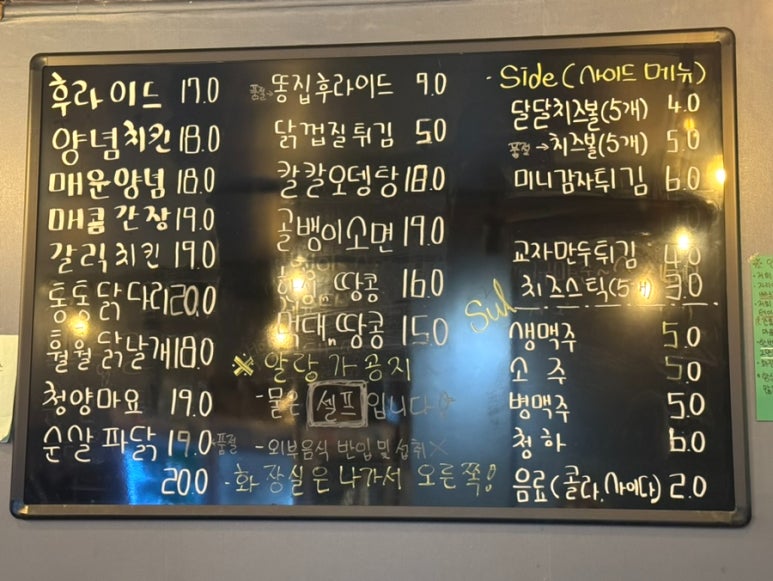 후라이드 17.0
양념치킨 18.0
매운양념 18.0
매콤간장 19.0
갈릭치킨 19.0
통통닭다리 20.0
훨훨닭날개 18.0
청양마요 19.0
순살파닭 19.0 품절
20.0
품절→똥집후라이드 9.0
닭껍질튀김 5.0
칼칼오뎅탕 18.0
골뱅이소면 19.0
땅콩 16.0
먹태,,땅콩 15.0
※ 알랑가공지
- 물은 셀프입니다
- 외부음식 반입 및 섭취 X
- 화장실은 나가서 오른쪽!
- Side (사이드 메뉴)
달달치즈볼(5개) 4.0
품절→치즈볼(5개) 5.0
미니감자튀김 6.0
교자만두튀김 4.0
치즈스틱(5개) 3.0
Sul
생맥주 5.0
소주 5.0
병맥주 5.0
청하 6.0
음료(콜라,사이다) 2.0